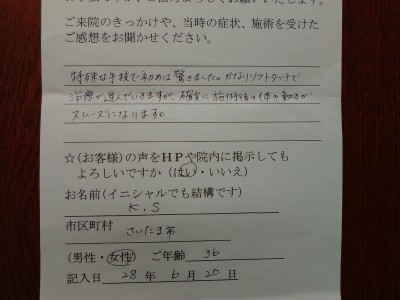 ご来院のきっかけや、当時の症状、施術を受けた
ご感想をお聞かせください。
特殊な手技で初めは驚きました。かなりソフトタッチで
治療が進んでいきますが、確実に施術後の体の動きが
スムーズになります。
☆(お客様)の声をHPや院内に掲示しても
よろしいですか(はい・いいえ)
お名前(イニシャルでも結構です)
K.S
市区町村 さいたま市
(男性・女性) ご年齢 36
記入日 28 年 6 月 20 日